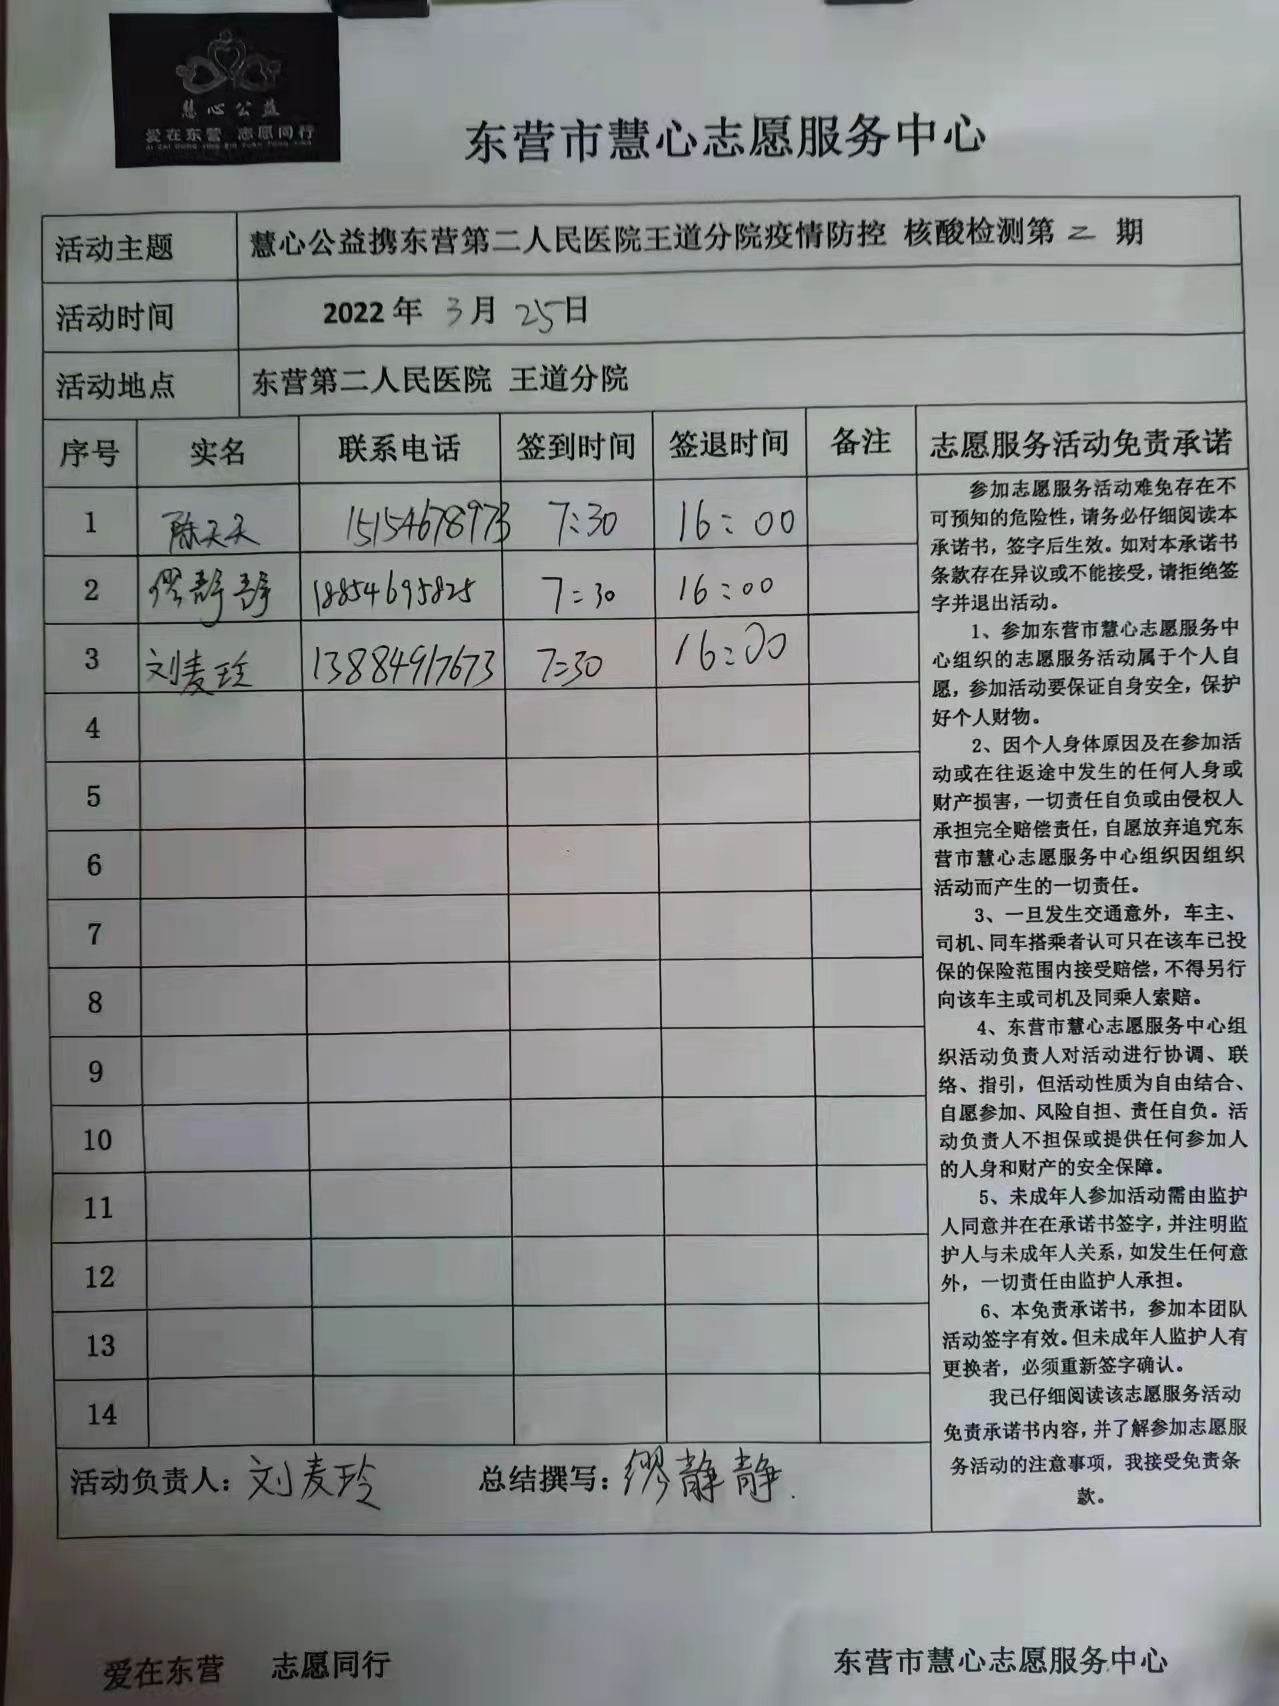 慧心公益
爱在东营 志愿同行
AI ZAI DONG YING ZHI YUAN TONG XING
东营市慧心志愿服务中心
活动主题 慧心公益携东营第二人民医院王道分院疫情防控 核酸检测第二期
活动时间 2022年 3月 25日
活动地点 东营第二人民医院 王道分院
序号 实名 联系电话 签到时间 签退时间 备注 志愿服务活动免责承诺
1 陈天天 15154678973 7:30 16:00
2 缪静静 18854695825 7:30 16:00
3 刘麦玲 13884917673 7:30 16:00
4
5
6
7
8
9
10
11
12
13
14
参加志愿服务活动难免存在不
可预知的危险性，请务必仔细阅读本
承诺书，签字后生效。如对本承诺书
条款存在异议或不能接受，请拒绝签
字并退出活动。
1、参加东营市慧心志愿服务中
心组织的志愿服务活动属于个人自
愿，参加活动要保证自身安全，保护
好个人财物。
2、因个人身体原因及在参加活
动或在往返途中发生的任何人身或
财产损害，一切责任自负或由侵权人
承担完全赔偿责任，自愿放弃追究东
营市慧心志愿服务中心组织因组织
活动而产生的一切责任。
3、一旦发生交通意外，车主、
司机、同车搭乘者认可只在该车已投
保的保险范围内接受赔偿，不得另行
向该车主或司机及同乘人索赔。
4、东营市慧心志愿服务中心组
织活动负责人对活动进行协调、联
络、指引，但活动性质为自由结合、
自愿参加、风险自担、责任自负。活
动负责人不担保或提供任何参加人
的人身和财产的安全保障。
5、未成年人参加活动需由监护
人同意并在在承诺书签字，并注明监
护人与未成年人关系，如发生任何意
外，一切责任由监护人承担。
6、本免责承诺书，参加本团队
活动签字有效。但未成年人监护人有
更换者，必须重新签字确认。
我已仔细阅读该志愿服务活动
免责承诺书内容，并了解参加志愿服
务活动的注意事项，我接受免责条
款。
活动负责人：刘麦玲 总结撰写：缪静静.
爱在东营 志愿同行 东营市慧心志愿服务中心